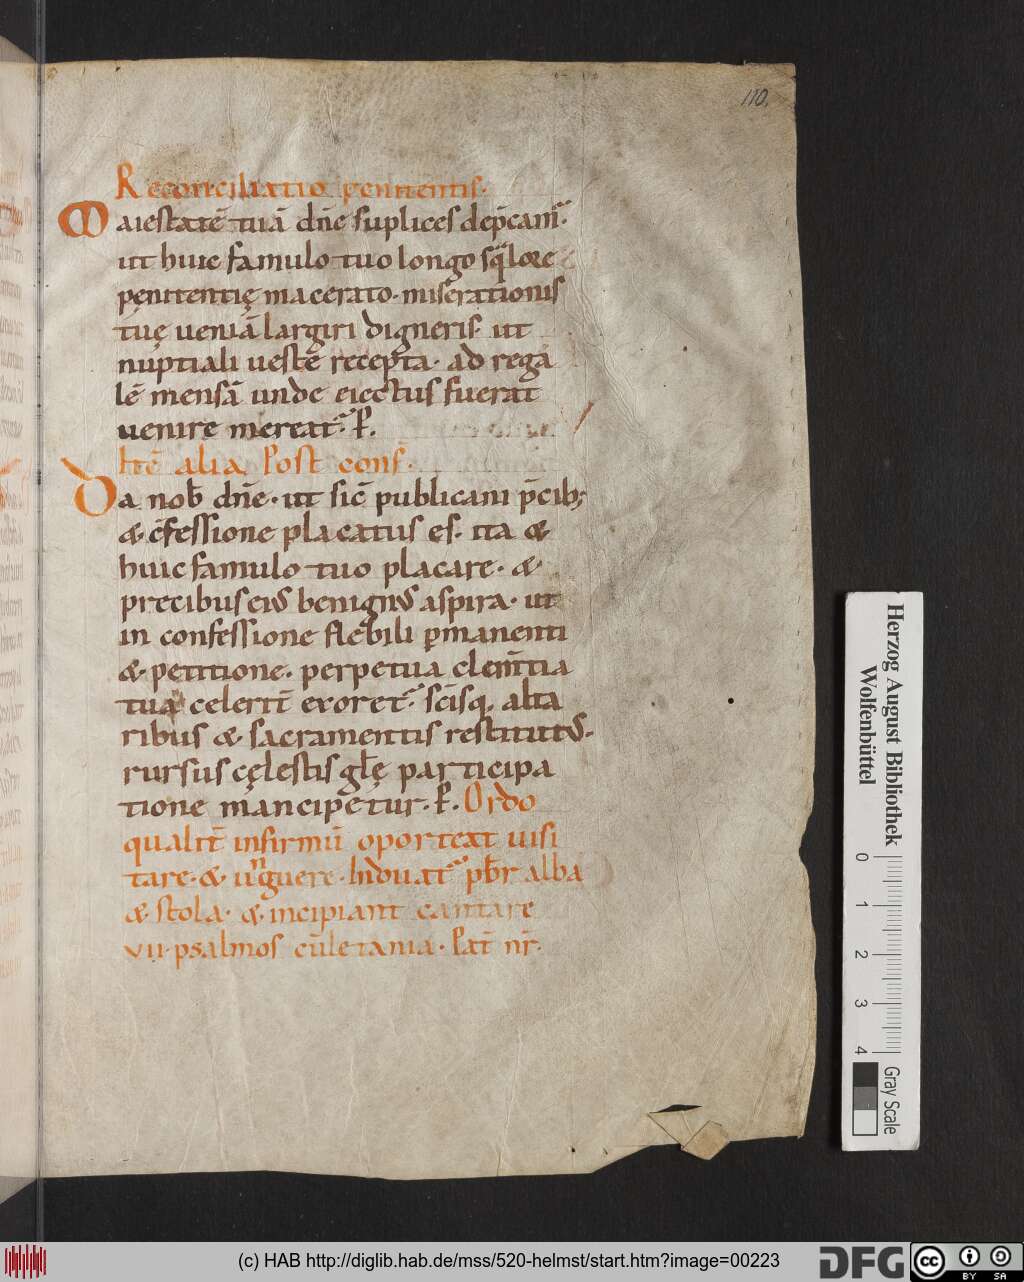 110.
Reconciliatio penitentis.
Maiestatē tuā dn̄e suplices dep̄camꝰ.
ut huic famulo tuo longo sq̄lore
penitentię macerato. miserationis
tuę ueniā largiri digneris. ut
nuptiali uestē recepta. ad rega
lē mensā unde eiectus fuerat
uenire mereatꝰ. P.
Itē alia Post conf.
Da nob̄ dn̄e. ut sic̄ publicani p̄cib;
& c̄fessione placatus es. ita &
huic famulo tuo placare. &
precibus eiꝰ benignꝰ aspira. ut
in confessione flebili ꝑmanenti
& petitione. perpetua clem̄tia
tua celerit̄ exoretꝰ. sc̄isq, alta
ribus & sacramentis restitutꝰ.
rursus cęlestis głę participa
tione mancipetur. P. Ordo
qualit̄ infirmū oporteat uisi
tare. & unguere. Induatꝰ pb̄r alba
& stola. & incipiant cantare
VII. psalmos cū letania. Pat̄ nr̄.
Herzog August Bibliothek
Wolfenbüttel
0 1 2 3 4
Gray Scale
(c) HAB http://diglib.hab.de/mss/520-helmst/start.htm?image=00223
DFG
cc BY SA